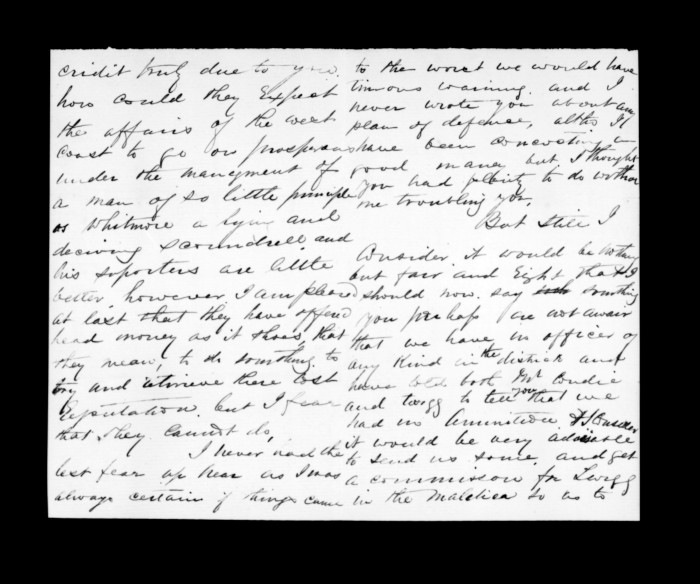 cridit truly due to you.
how could they Expect
the affairs of the west
coast to go on prosperas
under the mangment of
a man of so little principle
as Whitmore a lying and
deciving scoundrell and
his soporters are little
better. however I am pleased
at last that they have offered
head money as it shoes, that
they mean, to do something to
try and retrieve there lost
reputation. but I fear
that they cannot do,
I never had the
lest fear up hear as I was
always certain if things came
to the worst we would have
timous warning. and I
never wrote you about any
plan of defence, altho I
have been concocting a
good many but I thought
you had plenty to do without
me troubling you,
But still I
Consider it would be nothing
but fair and Right that I
should now. say something
you perhaps are not awair
that we have no officer of
any Kind in the district and
have told both Mr Condie
and twogg to tell you that we
had no Aminition. &
it would be very advisable
to send us some. and get
a commisson for Twigg
in the Malitica so as to